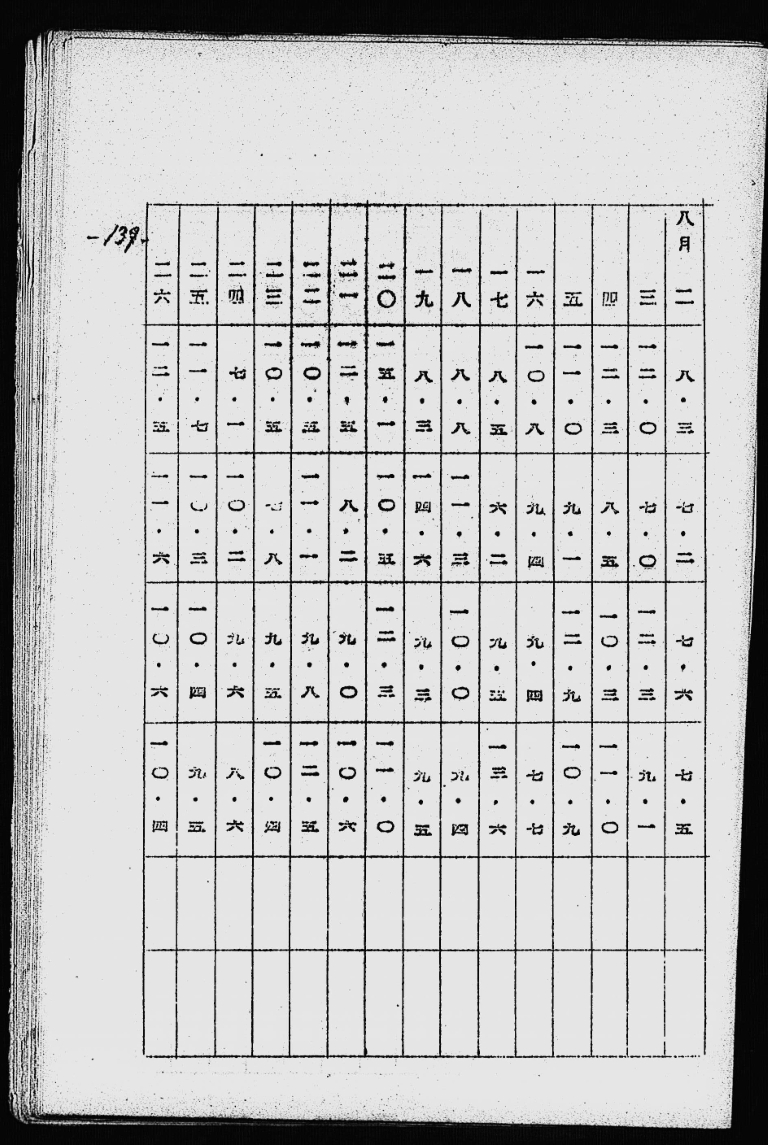 八月 二 八・三 七・二 七・六 七・五
三 一二・〇 七・〇 一二・三 九・一
四 一二・三 八・五 一〇・三 一一・〇
五 一一・〇 九・一 一二・九 一〇・九
一六 一〇・八 九・四 九・四 七・七
一七 八・五 六・二 九・五 一三・六
一八 八・八 一一・三 一〇・〇 九・四
一九 八・三 一四・六 九・三 九・五
二〇 一五・一 一〇・五 一二・三 一一・〇
二一 一二・五 八・二 九・〇 一〇・六
二二 一〇・五 一一・一 九・八 一二・五
二三 一〇・五 七・八 九・五 一〇・四
二四 七・一 一〇・二 九・六 八・六
二五 一一・七 一〇・三 一〇・四 九・五
二六 一二・五 一一・六 一〇・六 一〇・四
-139-